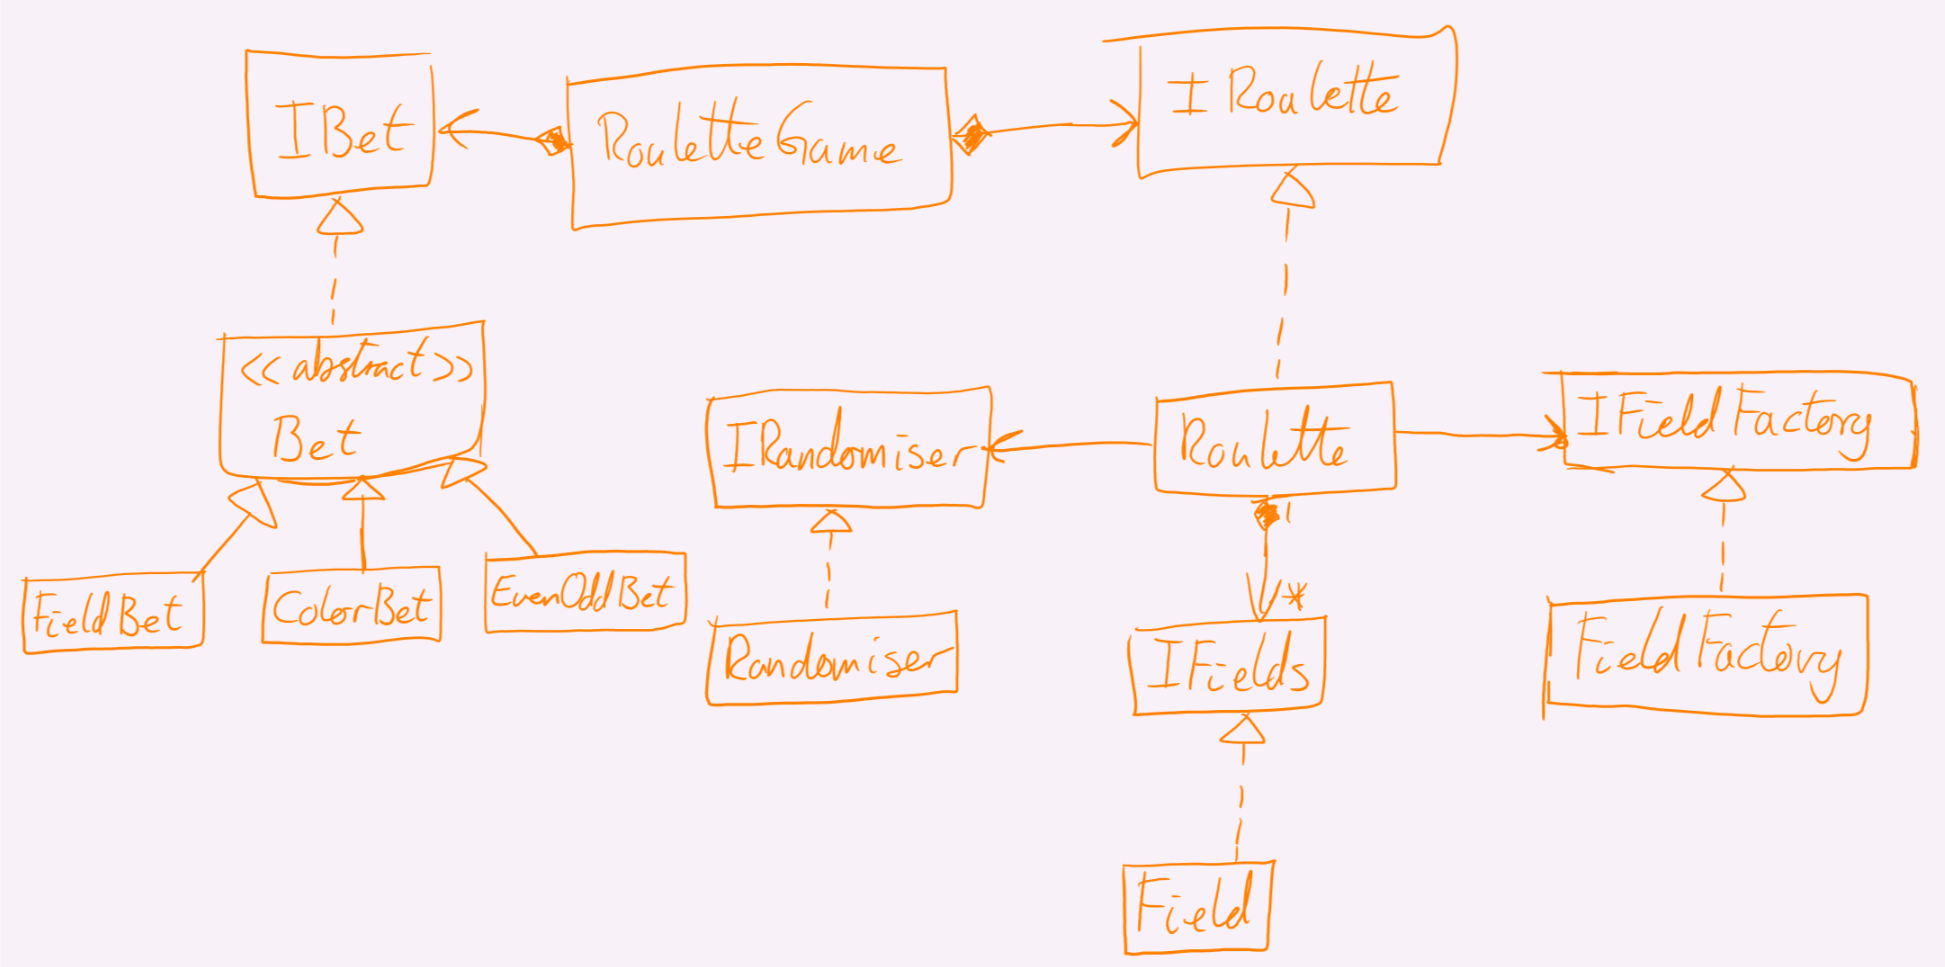 IBet
RouletteGame
IRoulette
<<abstract>>
Bet
IRandomiser
Roulette
IFieldFactory
FieldBet
ColorBet
EvenOddBet
*
Randomiser
IFields
FieldFactory
Field